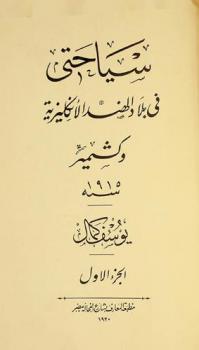 سياحتى
فى بلاد الهند الانكليزية
وكشمير
سنه ١٩١٥
يوسف كمال
الجزء الاول
مطبعة المعارف بشارع الفجالة بمصر
١٩٢٠